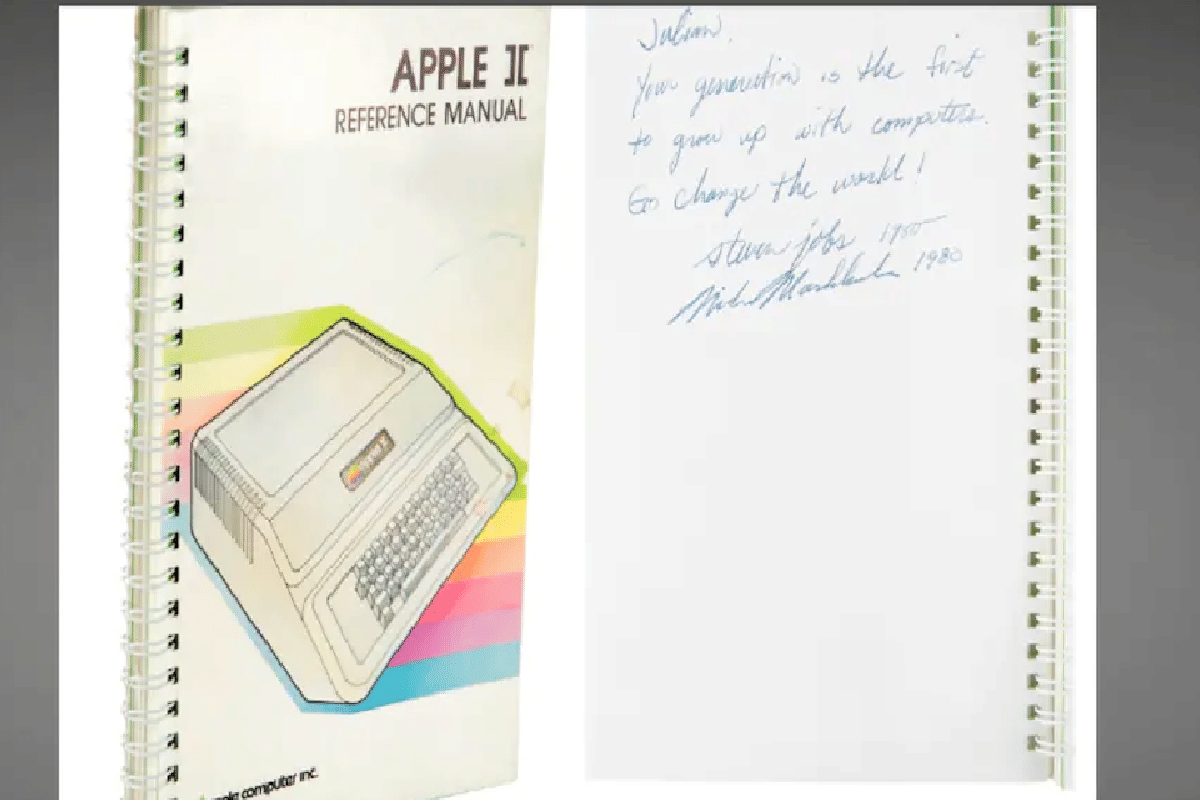 APPLE ][
REFERENCE MANUAL
apple computer inc.
Julian,
Your generation is the first
to grow up with computers.
Go change the world!
steven jobs 1980
1980